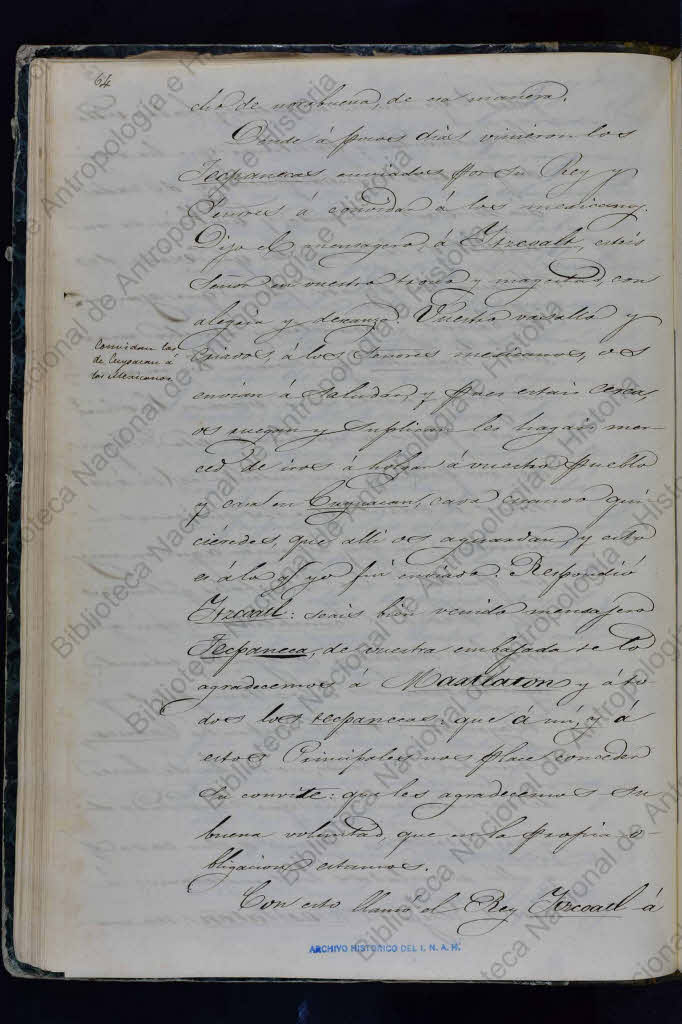 64
cho de norabuena, de na manera.
Dende á pocos dias vinieron los
Tecpanecas enviados por su Rey y
Señores á convidar á los mexicanos.
Dijo el mensagero, á Itzcoatl, esteis
Señor en vuestro trono y magestad, con
alegria y descanzo. Vuestro vasallo y
criados, á los Señores mexicanos, os
Convidan los
de Cuyuacan á
los Mexicanos
envian á saludar, y pues estais cerca,
os ruegan y suplican les hagais mer-
ced de iros a holgar á vuestro pueblo
y casa en Cuyuacan, casa cuanos qui
cieredes, que alli os aguardan, y esto
es á lo q. yo fui enviado. Respondió
Itzcoatl: seais bien venido mensajero
Tecpaneca, de vuestra embajada se lo
agradecemos á Maxtlaton y á to
dos los tecpanecas: que á mi, y á
estos Principales nos place conceder
su convite: que les agradecemos su
buena voluntad, que en la propia o-
bligacion estamos.
Con esto llamó el Rey Itzcoatl á
ARCHIVO HISTORICO DEL I. N. A. H.
Biblioteca Nacional de Antropología e Historia